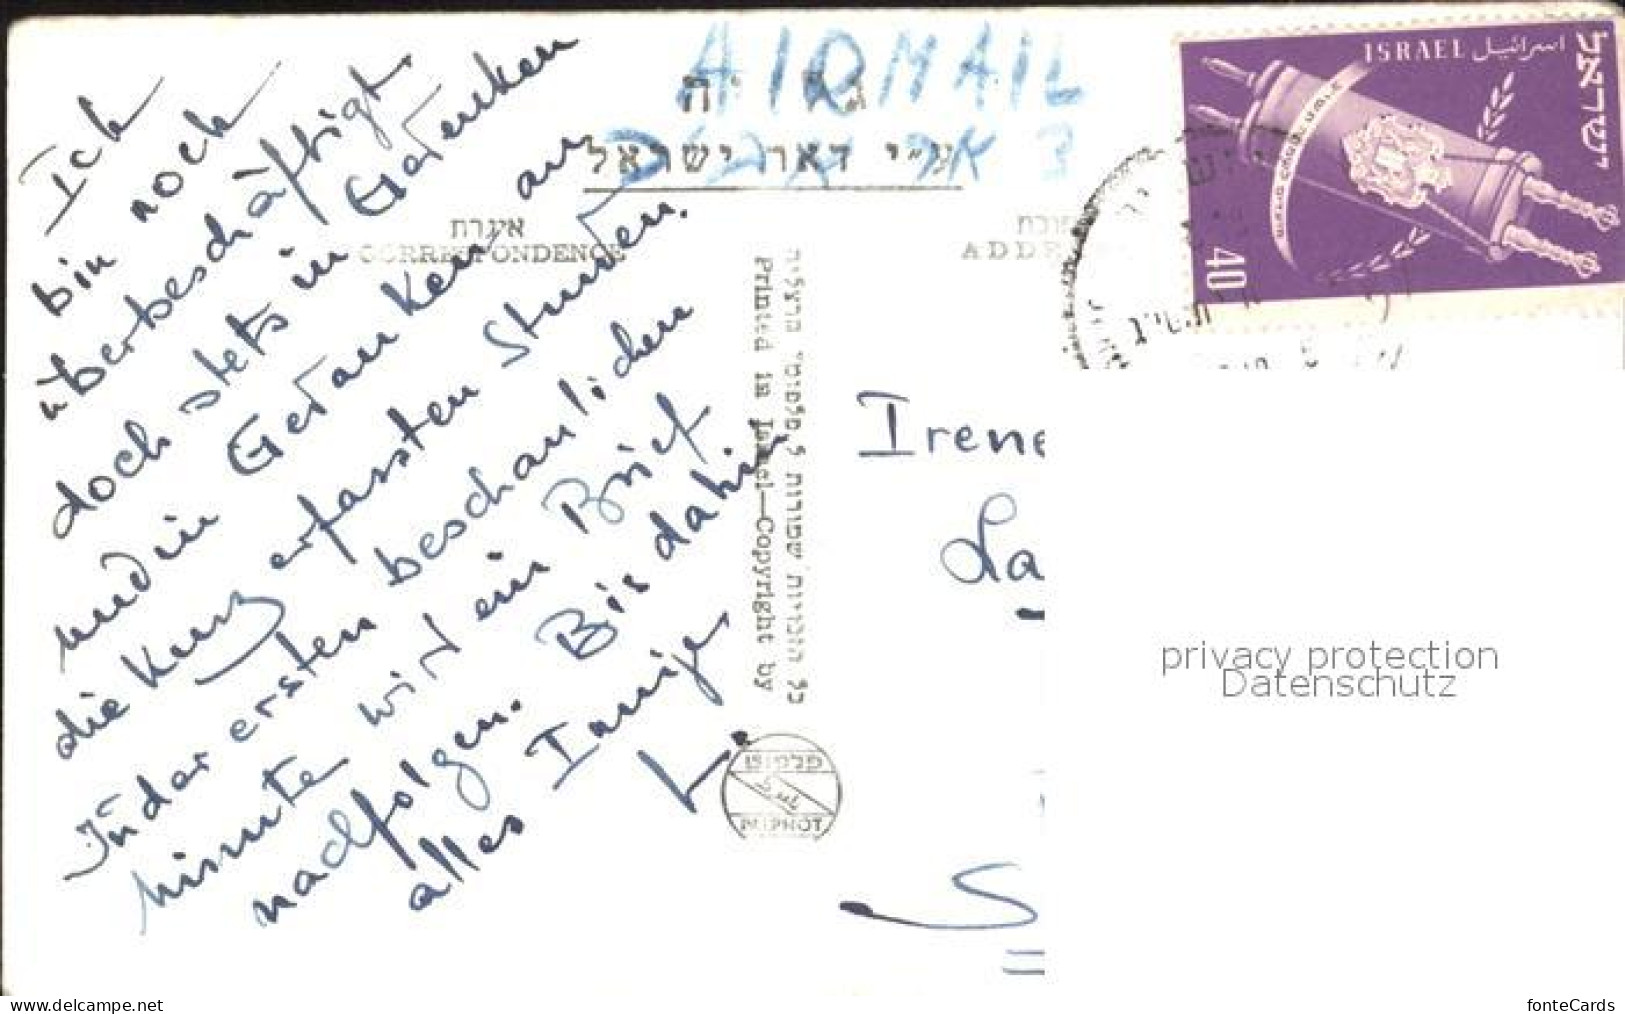 AIRMAIL
גלויה
ע״י דאר ישראל
ISRAEL اسرائيل
ישראל
40
אינרת
CORRESPONDENCE
ADDRE
Ich
bin noch
überbeschäftigt
doch stets in Gedanken
und in Gedanken an
die kurz erfassten Stunden.
In der ersten beschaulichen
Minute wird ein Brief
nachfolgen. Bis dahin
alles Innige
L.
כל הזכויות שמורות ל"פלפוט" הרצליה
Printed in Israel—Copyright by
פלפוט
PALPHOT
Irene
La
S
privacy protection
Datenschutz
www.delcampe.net
fonteCards